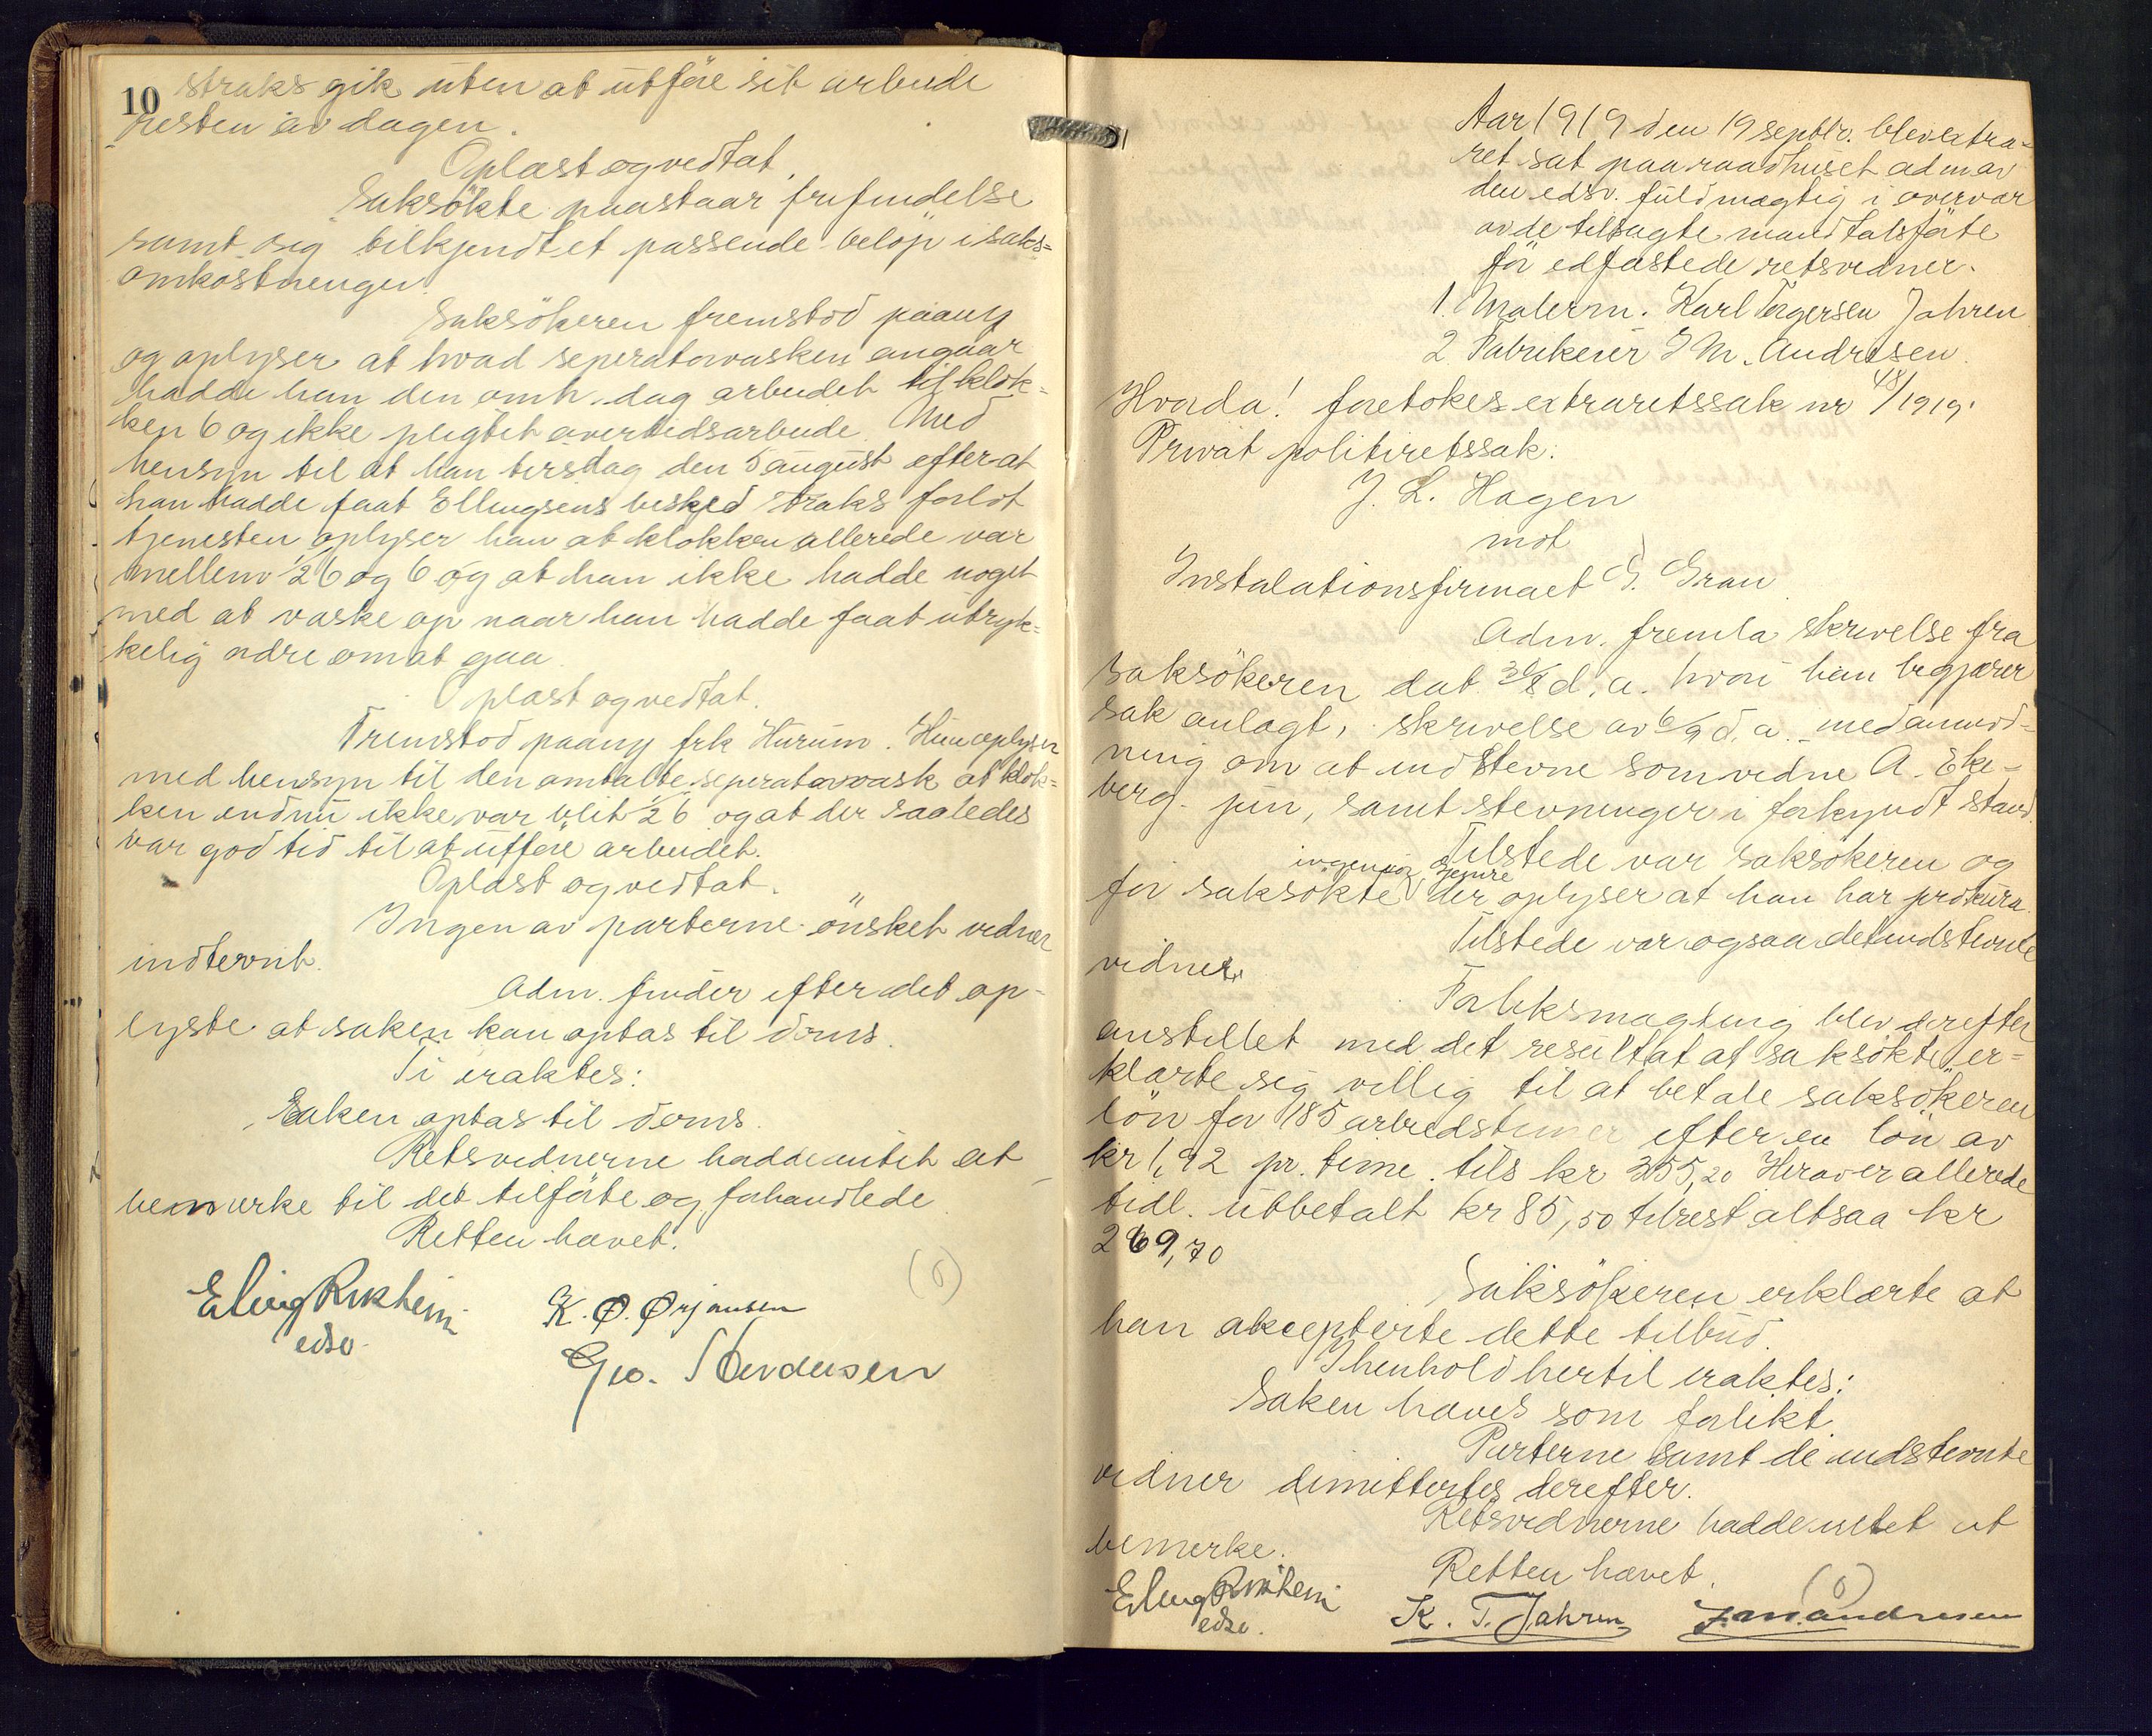 10 straks gik uten at utføre sit arbeide
resten av dagen.
Oplæst og vedtat.
Saksökte paastaar frifindelse
samt sig tilkjendt et passende belöp i saks=
omkostninger.
Saksökeren fremstod paany
og oplyser at hvad seperatorvasken angaar
hadde han den omh. dag arbeidet til klok=
ken 6 og ikke pligtet overtidsarbeide. Med
hensyn til at han tirsdag den 5 august efter at
han hadde faat Ellingsens besked straks forlot
tjenesten oplyser han at klokken allerede var
mellem 1/2 6 og 6 og at han ikke hadde noget
med at vaske op naar han hadde faat utryk=
kelig ordre om at gaa.
Oplæst og vedtat.
Fremstod paany frk Hurum. Hun oplyser
med hensyn til den omtalte seperatorvask at klok=
ken endnu ikke var blit 1/2 6 og at der saaledes
var god tid til at utføre arbeidet.
Oplæst og vedtat.
Ingen av parterne önsket vidner
indstevnt.
Adm. finder efter det op-
lyste at saken kan optas til doms.
Ti eraktes:
Saken optas til doms.
Retsvidnerne hadde intet at
bemerke til det tilförte og forhandlede.
Retten hævet.
(0)
Erling Rikheim K. Ø. Ørjansen
edsv. Geo.
Aar 1919 den 19 septbr. blev extra-
ret sat paa raadhuset adm av
den edsv. fuldmægtig i overvær
av de tilsagte mandtalsførte
før edfæstede retsvidner.
1. Malerm. Karl Torgersen Jahren
2 Fabrikeier J M. Andresen.
Hvorda! foretokes extraretssak nr 48/1919.
Privat politiretssak:
J. L. Hagen
mot
Instalationsfirmaet G. Gran.
Adm. fremla skrivelse fra
saksökeren dat 30/8 d. a. hvori han begjærer
sak anlagt, skrivelse av 6/9 d. a. med anmod-
ning om at indstevne som vidne A. Eke-
berg jun, samt stevninger i forkyndt stand.
Tilstede var saksökeren og
ingeniør
for saksökte der oplyser at han har prokura.
Tilstede var ogsaa det indstevnte
vidner.
Forliksmægling blev derefter
anstillet med det resultat at saksökte er=
klærte sig villig til at betale saksökeren
lön for 185 arbeidstimer efter en lön av
kr 1,92 pr. time. tils kr 355,20 Herav er allerede
tidl. utbetalt kr 85,50 tilrest altsaa kr
269,70
Saksökeren erklærte at
han akcepterte dette tilbud.
I henhold hertil eraktes:
Saken hæves som forlikt.
Parterne samt de indstevnte
vidner dimittertes derefter.
Retsvidnerne hadde intet at
bemerke.
Retten hævet.
(0)
Erling Rikheim K. T. Jahren J. M. Andresen
edsv.